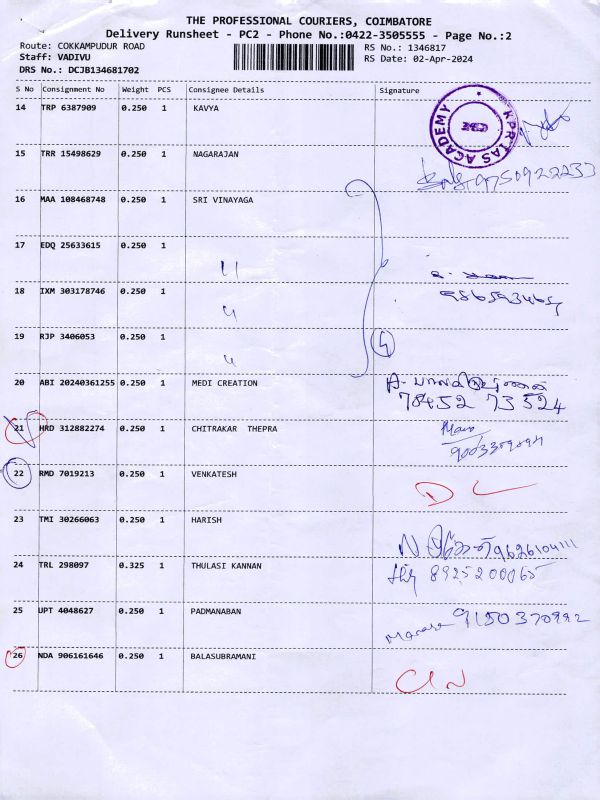 THE PROFESSIONAL COURIERS, COIMBATORE
Delivery Runsheet - PC2 - Phone No.:0422-3505555 - Page No.:2
Route: COKKAMPUDUR ROAD
RS No.: 1346817
Staff: VADIVU
RS Date: 02-Apr-2024
DRS No.: DCJB134681702
S No Consignment No Weight PCS Consignee Details Signature
14 TRP 6387909 0.250 1 KAVYA
KPRIAS ACADEMY
15 TRR 15498629 0.250 1 NAGARAJAN
9750922233
16 MAA 108468748 0.250 1 SRI VINAYAGA
17 EDQ 25633615 0.250 1 "
18 IXM 303178746 0.250 1 "
19 RJP 3406053 0.250 1 "
20 ABI 20240361255 0.250 1 MEDI CREATION
78452 73524
21 HRD 312882274 0.250 1 CHITRAKAR THEPRA
22 RMD 7019213 0.250 1 VENKATESH
D L
23 TMI 30266063 0.250 1 HARISH
9626104111
24 TRL 298097 0.325 1 THULASI KANNAN
8925200065
25 UPT 4048627 0.250 1 PADMANABAN
9150370992
26 NDA 906161646 0.250 1 BALASUBRAMANI